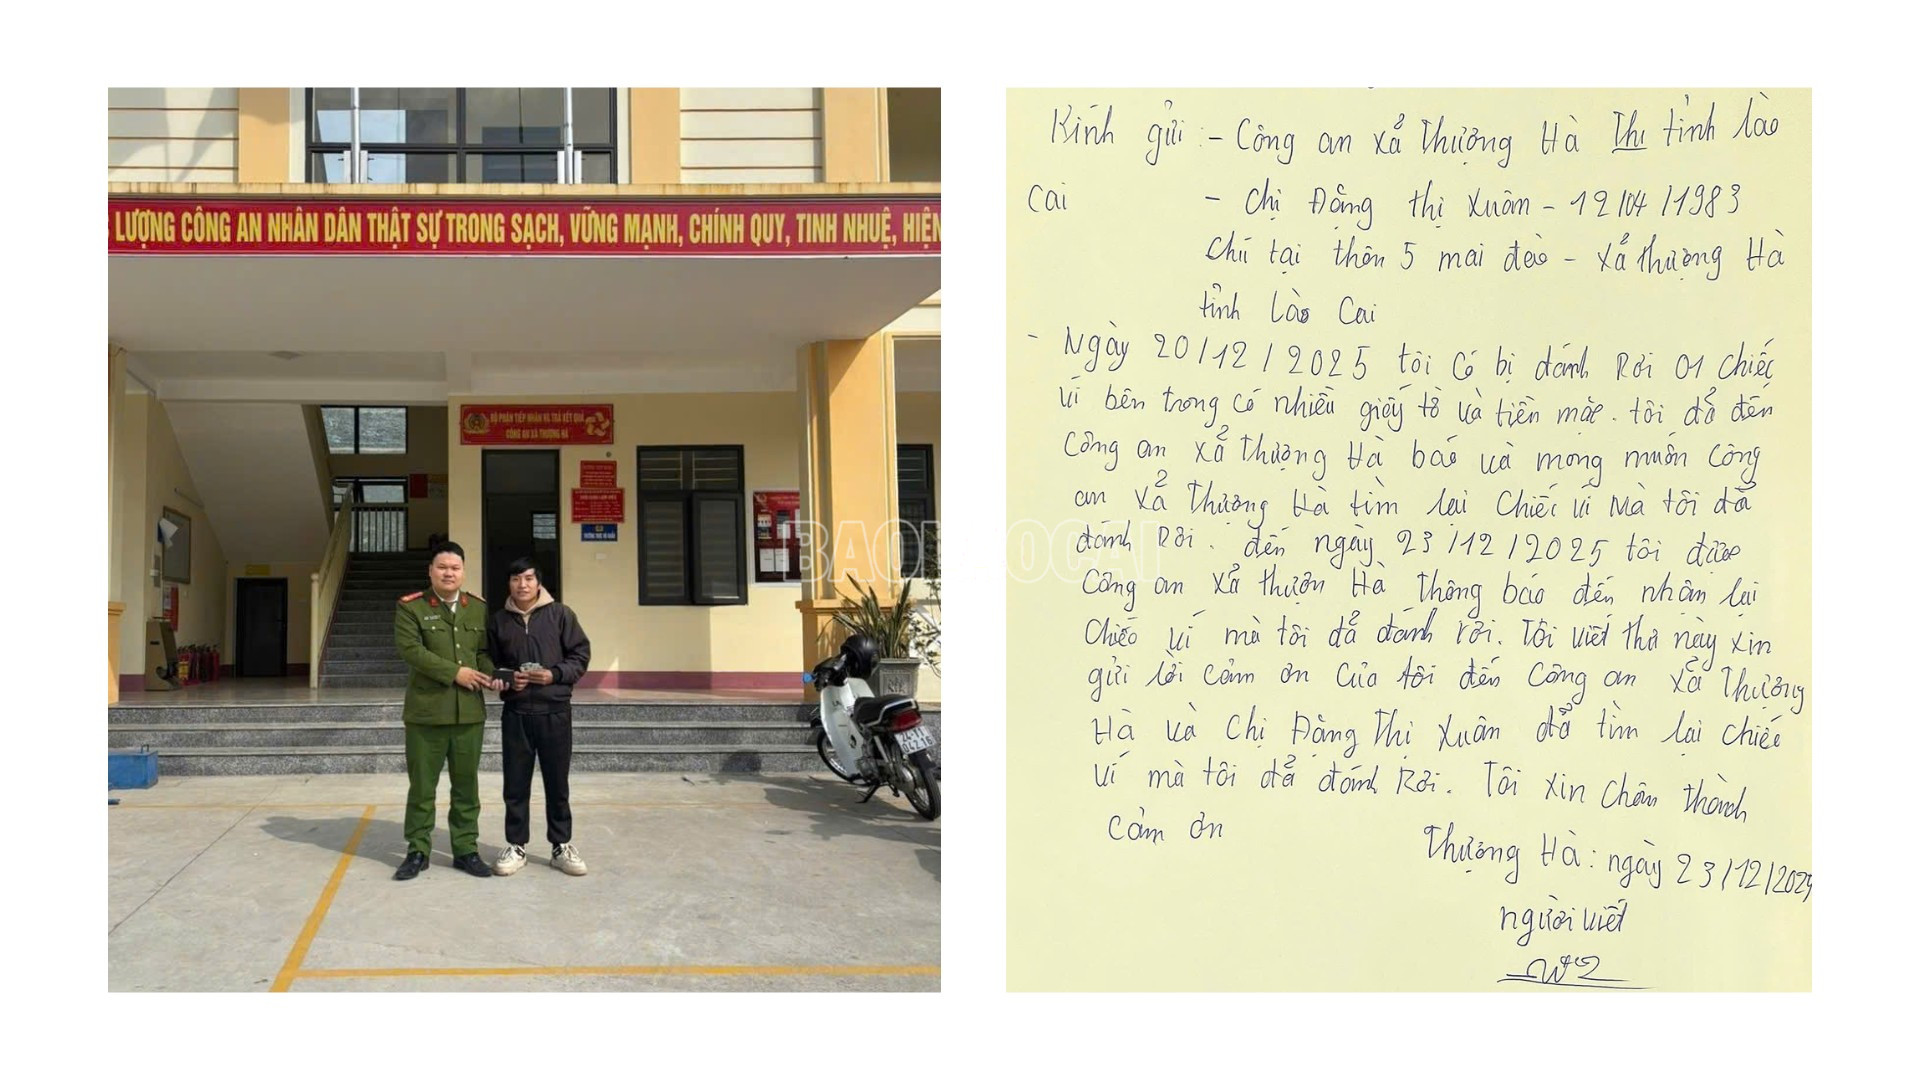 LƯỢNG CÔNG AN NHÂN DÂN THẬT SỰ TRONG SẠCH, VỮNG MẠNH, CHÍNH QUY, TINH NHUỆ, HIỆN
BỘ PHẬN TIẾP NHẬN VÀ TRẢ KẾT QUẢ
CÔNG AN XÃ THƯỢNG HÀ
BAOLAOCAI
Kính gửi: - Công an xã Thượng Hà Thị tỉnh Lào
Cai - Chị Đặng Thị Xuân - 12/04/1983
Chú tại thôn 5 mai đào - xã Thượng Hà
tỉnh Lào Cai
- Ngày 20/12/2025 tôi có bị đánh Rơi 01 chiếc
ví bên trong có nhiều giấy tờ và tiền mặc. tôi đã đến
Công an xã Thượng Hà báo và mong muốn Công
an xã Thượng Hà tìm lại Chiếc ví Mà tôi đã
đánh Rơi. đến ngày 23/12/2025 tôi được
Công an xã thượn Hà thông báo đến nhận lại
Chiếc ví mà tôi đã đánh rơi. Tôi viết thư này xin
gửi lời cảm ơn của tôi đến Công an xã Thượng
Hà và Chị Đặng Thị Xuân đã tìm lại chiếc
ví mà tôi đã đánh Rơi. Tôi xin Chân thành
cảm ơn
Thượng Hà: ngày 23/12/2025
người viết